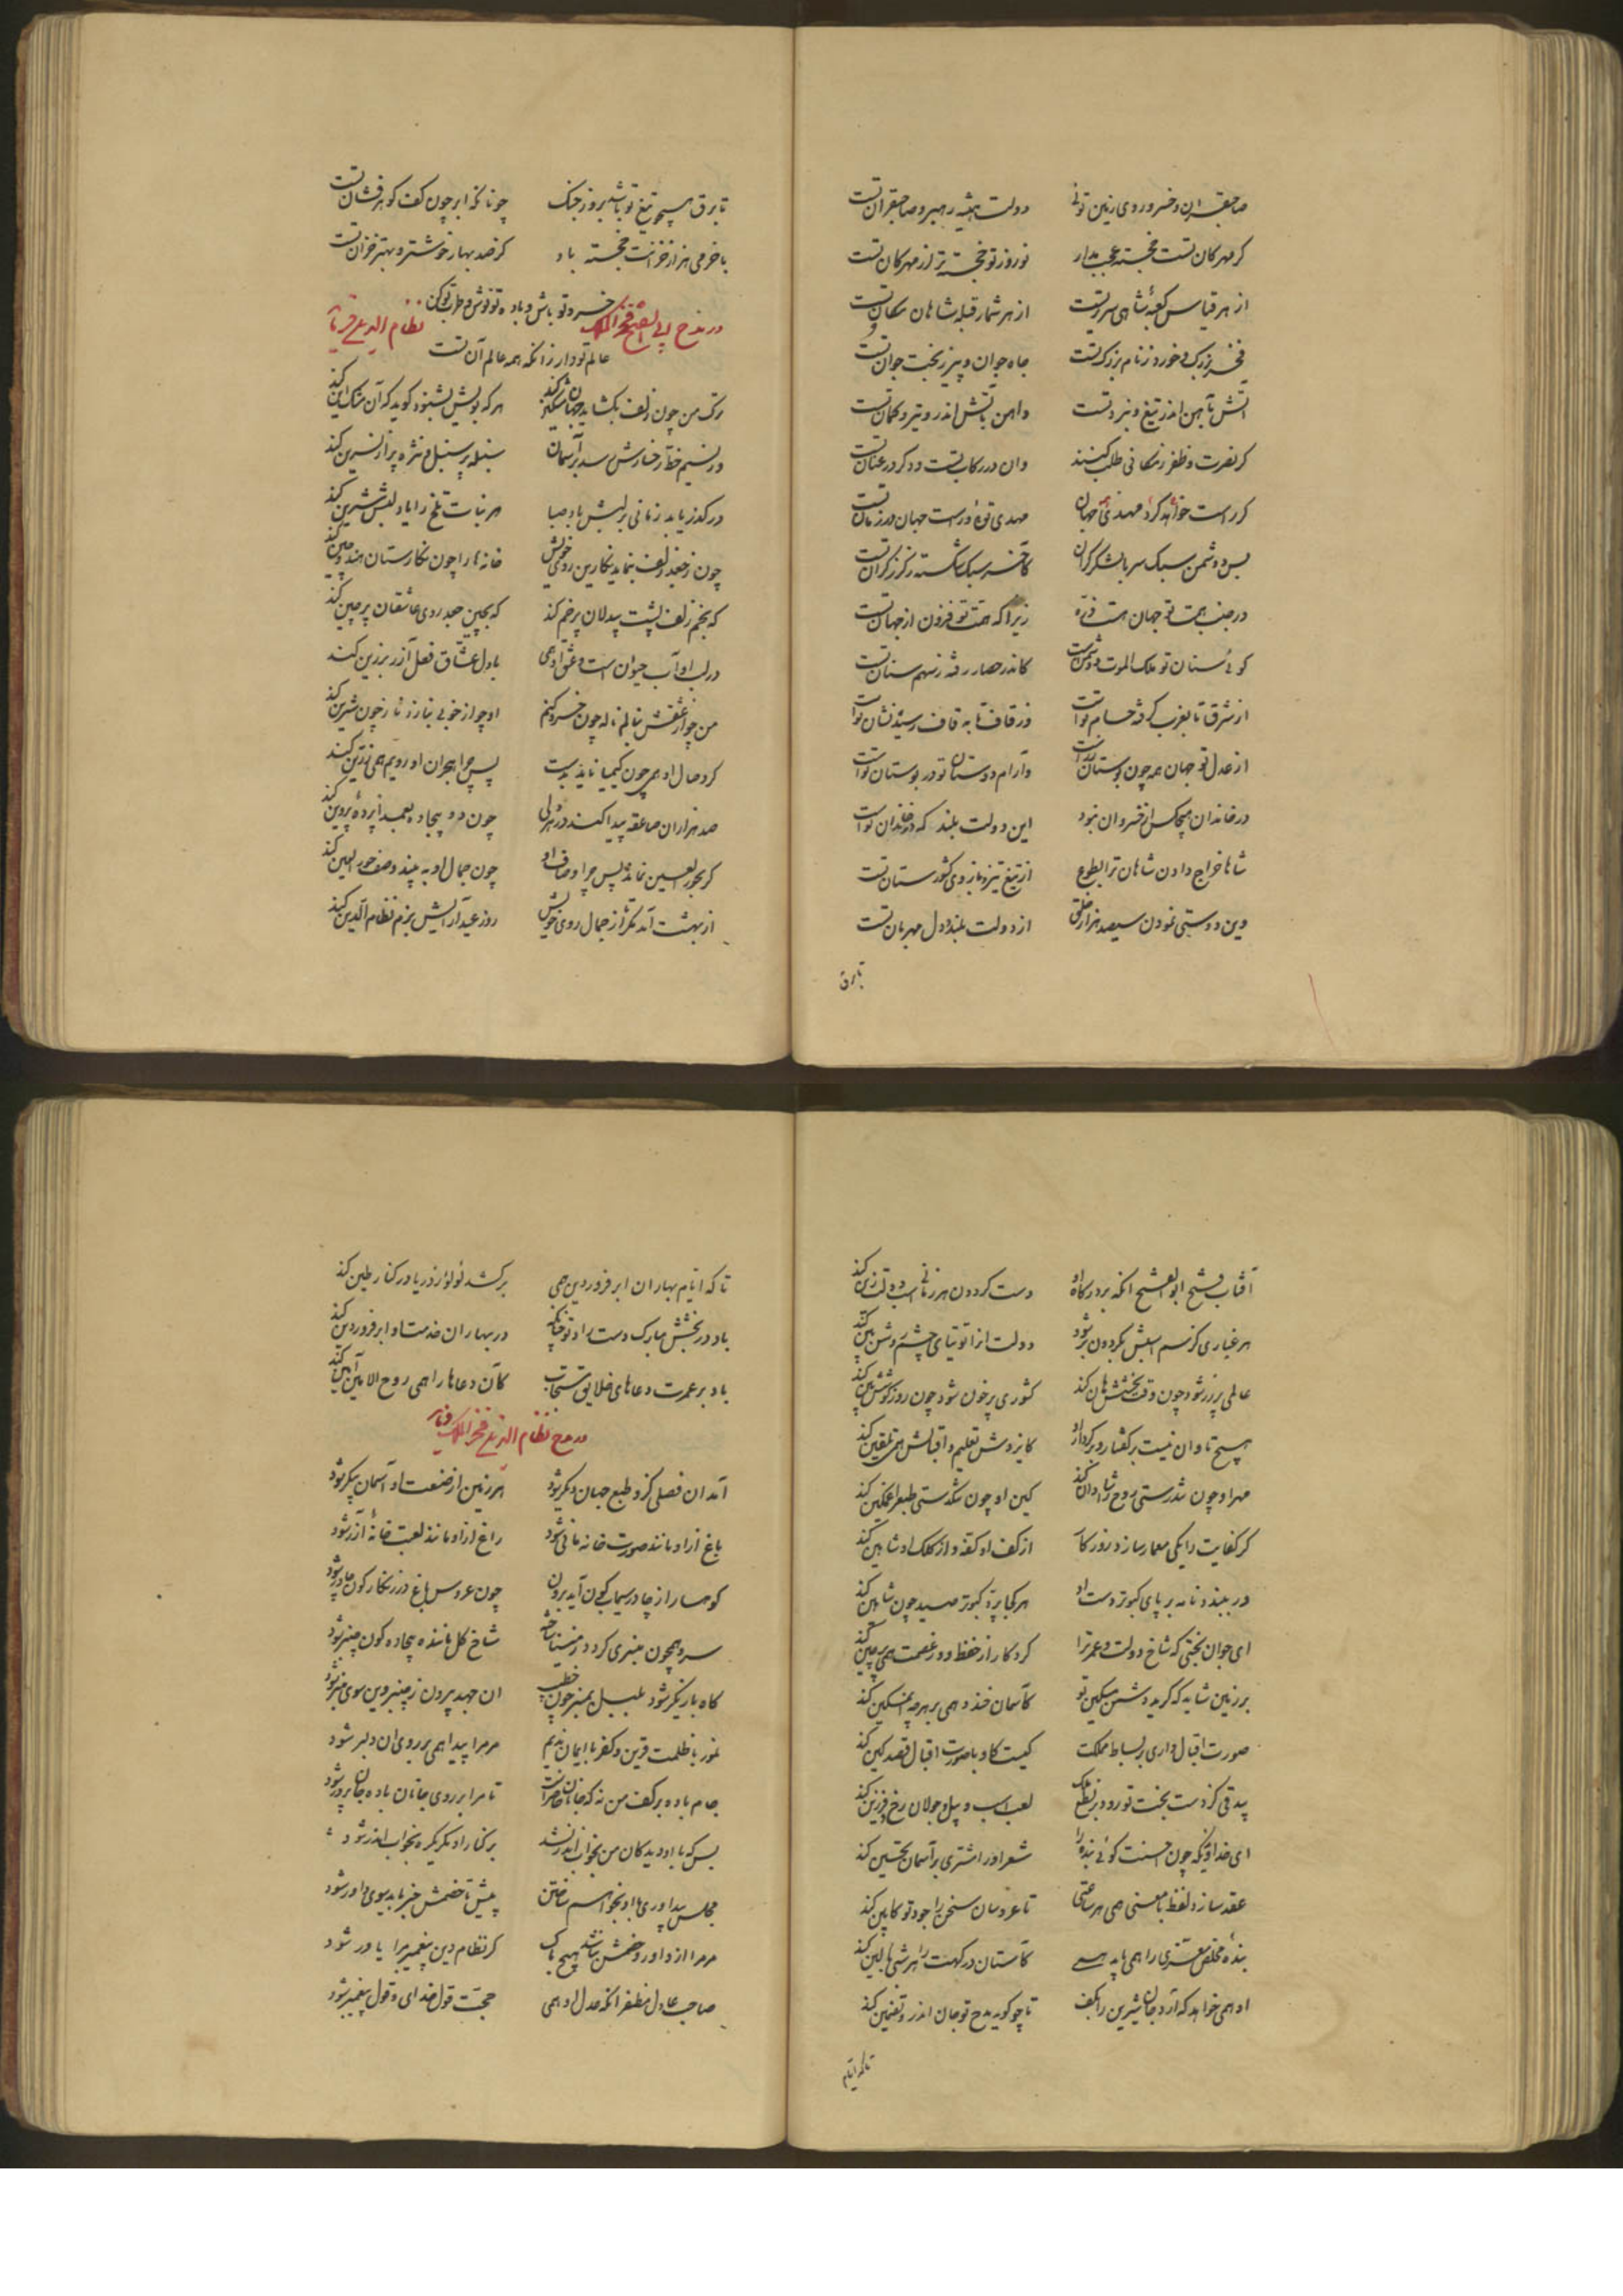 صاحبقران و خسرو روی زمین توئی دولت همیشه رهبر و صاحبقران تست
کر مهرکان تست خجسته عجب مدار نوروز تو خجسته تر از مهرکان تست
از هر قیاس کعبهٔ شاهی سریر تست از هر شمار قبله شاهان مکان تست
فخر بزرک و خورد ز نام بزرک تست جاه جوان و پیر ز بخت جوان تست
آتش بآهن اندر تیغ و نبرد تست و آهن بآتش اندر و تیر و کمان تست
کر نصرت و ظفر ز مکانی طلب کنند وان در رکاب تست و دکر در عنان تست
کر راست خواهد کرد مهدی جهان مهدی توئی و راست جهان در زمان تست
بس دشمن سبک سر با لشکر کران کآخر سبک شکسته ز کرز کران تست
در جنب همت تو جهان هست ذره زیرا که همت تو فزون از جهان تست
کوئی سنان تو ملک الموت دشمنست کاندر حصار رفته ز سهم سنان تست
از شرق تا بغرب کرفته حسام تو است وز قاف تا به قاف رسیده نشان تو است
از عدل تو جهان همه چون بوستان شد است و آرام دوستان تو در بوستان تو است
در خاندان هیچکس از خسروان نبود این دولت بلند که در خاندان تو است
شاها خراج دادن شاهان ترا بطوع از تیغ تیز و بازوی کشورستان تست
وین دوستی نمودن سیصد هزار خلق از دولت بلند و دل مهربان تست
تا برق
تا برق همچو تیغ تو باشد بروز جنک چونانکه ابر چون کف کوهرفشان تست
با خرمی هزار خزانت خجسته باد کز صد بهار خوشتر و بهتر خزان تست
خسرو تو باش و باده تو نوش و طرب تو کن
در مدح ابی الفتح فخر الملک نظام الدین علی فرماید
عالم تو دار زانکه همه عالم آن تست
ترک من چون زلف بکشاید جهان مشکین کند هر که بویش بشنود کوید که آن مشک این کند
ور نسیم خط رخسارش رسد بر آسمان سنبله پر سنبل و نثره پر از نسرین کند
ور کذر یابد زمانی بر لبش باد صبا هر نبات تلخ را یاد لبش شیرین کند
چون ز جعد زلف بنماید نکارین روی خویش خانه ما را چون نکارستان هند و چین کند
که بخم زلف پشت بیدلان پرخم کند که بچین جعد روی عاشقان پرچین کند
در لب او آب حیوان است و عشق او همی با دل عشاق فعل آذر برزین کند
من چو از عشقش بنالم ناله چون خسرو کنم او چو از خوبی بنازد ناز چون شیرین کند
کر وصال او همی چون کیمیا ناید بدست پس چرا هجران او رویم همی زرین کند
صد هزاران صاعقه پیدا کند در هر دلی چون دو بیجاده بعمدا پردهٔ پروین کند
کر بحور العین نماند پس چرا وصاف او چون جمال او به بیند وصف حور العین کند
از بهشت آمد مکر تا از جمال روی خویش روز عید آرایش بزم نظام الدین کند
آفتاب فتح ابو الفتح آنکه بر درکاه او دست کردون هر زمانی اسب دولت زین کند
هر غباری کز سم اسبش بکردون بر شود دولت آنرا توتیای چشم روشن بین کند
عالمی پر زر شود چون وقت بخشش هان کند کشوری پر خون شود چون روز کوشش هین کند
هیچ تاوان نیست بر کفتار و بر کردار او کایزدش تعلیم و اقبالش همی تلقین کند
مهر او چون تندرستی روح را شادان کند کین او چون تنکدستی طبع را غمکین کند
کر کفایت را یکی معیار سازد روزکار از کف او کفه و از کلک او شاهین کند
در ببندد نامه بر پای کبوتر دست او هر کجا پرد کبوتر صید چون شاهین کند
ای جوان بختی که شاخ دولت و عمر ترا کردکار از حفظ و ز عصمت همی پرچین کند
بر زمین شاید که کرید دشمن مسکین تو کآسمان خندد همی بر هرچه آن مسکین کند
صورت اقبال داری بر بساط مملکت کیست کاو با صورت اقبال قصد کین کند
بیدقی کز دست بخت تو رود بر نطع ملک لعب اسب و پیل و جولان رخ و فرزین کند
ای خداوندیکه چون احسنت کوئی بنده را شعر او را مشتری بر آسمان تحسین کند
عقد سازد لفظ با معنی همی هر ساعتی تا عروسان سخن را جود تو کابین کند
بندهٔ مخلص معزی را همی باید همی کآستان درکهت را هر شبی بالین کند
او همی خواهد که آرد جان شیرین را بکف تا چو کوید مدح تو جان اندر و تضمین کند
تا که ایام
تا که ایام بهاران ابر فروردین همی برکشد لولو ز دریا در کنار طین کند
باد در بخشش مبارک دست راد تو چنانکه در بهاران خدمت او ابر فروردین کند
باد بر عمرت دعاهای خلایق مستجاب کآن دعاها را همی روح الامین آمین کند
در مدح نظام الدین علی فخر الملک فرماید
آمد آن فصلی کزو طبع جهان دیکر شود هر زمین از صنعت او آسمان پیکر شود
باغ از او مانند صورت خانه مانی شود راغ از او مانند لعبت خانهٔ آزر شود
کوهسار از چادر سیمابکون آید برون چون عروس باغ در زنکارکون چادر شود
سرو همچون منبری کردد ز مینا ساخته شاخ کل مانندهٔ بیجاده کون چنبر شود
کاه بازیکر شود بلبل بمنبر چون خطیب آن جهد بیرون ز چنبر وین سوی منبر شود
نور با ظلمت قرین و کفر با ایمان ندیم مر مرا پیدا همی بر روی آن دلبر شود
جام باده بر کف من نه که جانان حاضر است تا مرا بر روی جانان باده جان پرور شود
بس که با او دیدکان من بخواب اندر نشد بر کنار او مکر یکره بخواب اندر شود
مجلس بیداوری با او نخواهم ساختن پیش تا خصمش خبر یابد سوی داور شود
مر مرا از داور و خصمش نباشد هیچ باک کر نظام دین پیغمبر مرا یاور شود
صاحب عادل مظفر آنکه عدل او همی حجت قول خدای و قول پیغمبر شود